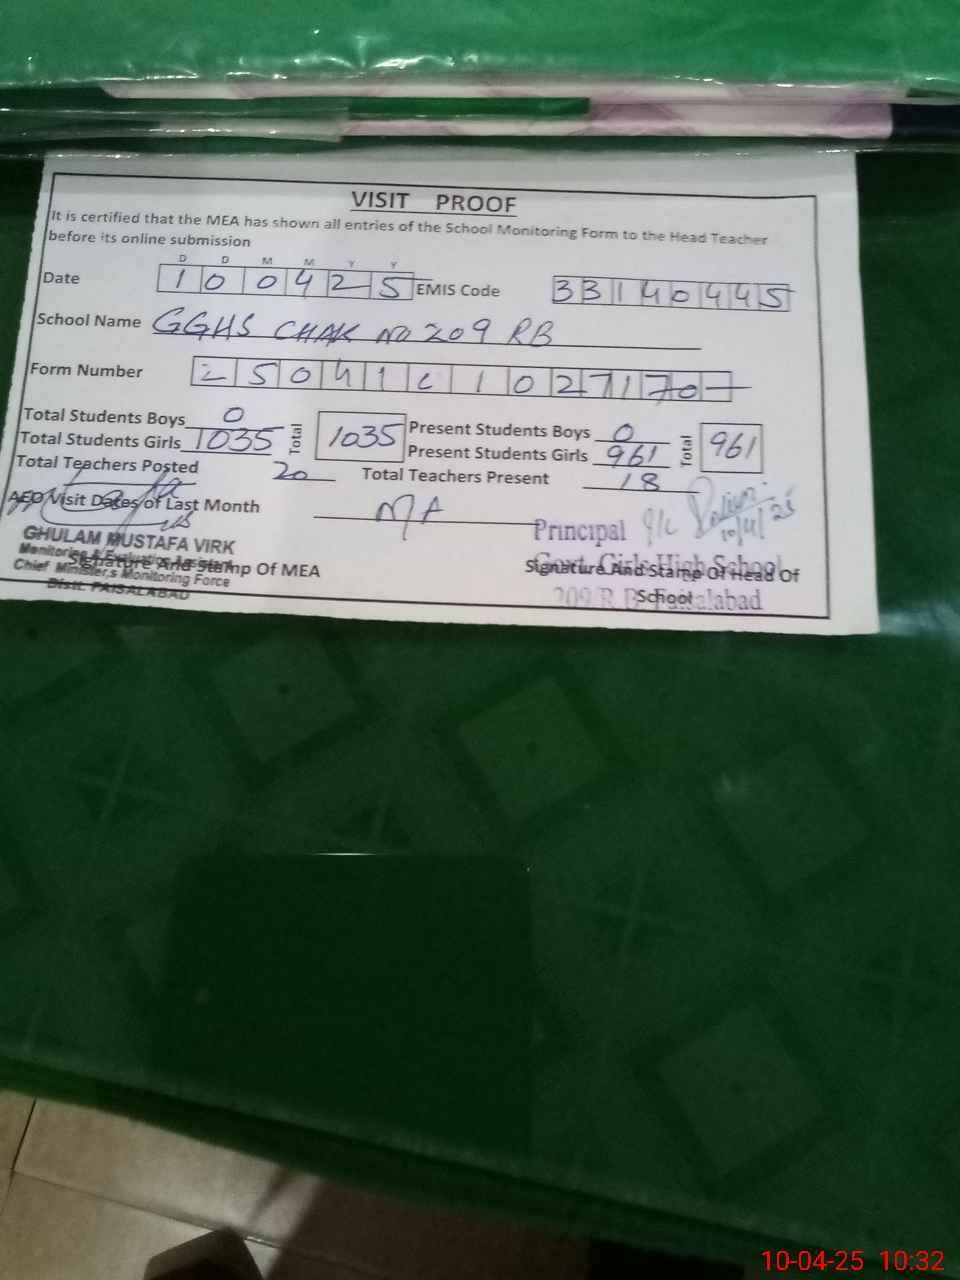 VISIT PROOF
It is certified that the MEA has shown all entries of the School Monitoring Form to the Head Teacher
before its online submission
D D M M Y Y
Date 1 0 0 4 2 5 EMIS Code 3 3 1 4 0 4 4 5
School Name GGHS CHAK NO 209 RB
Form Number
Total Students Boys 0 Total 1035 Present Students Boys 0 Total 961
Total Students Girls 1035 Present Students Girls 961
Total Teachers Posted 20 Total Teachers Present 18
AEO Visit Dates of Last Month NA
GHULAM MUSTAFA VIRK
Monitoring & Evaluation Assistant
Chief Minister,s Monitoring Force
Distt. FAISALABAD
Signature And Stamp Of MEA
Principal 10/4/25
Govt. Girls High School
209/R.B. Faisalabad
Signature And Stamp Of Head Of
School
10-04-25 10:32